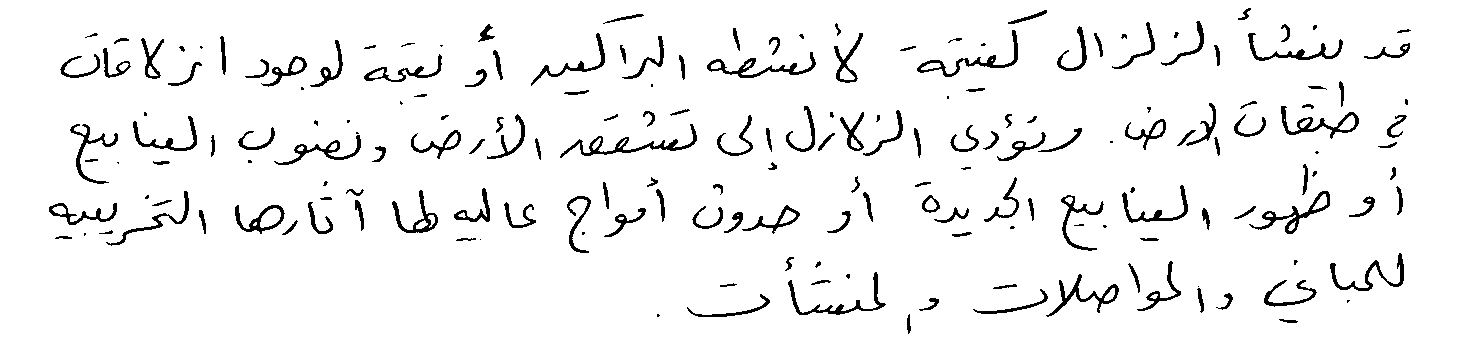 قد ينشأ الزلزال كنتيجة لأنشطه البراكين أو نتيجة لوجود انزلاقات
في طبقات الارض. وتؤدي الزلازل إلى تشقق الأرض ونضوب الينابيع
أو ظهور الينابيع الجديدة أو حدوث أمواج عاليه لها آثارها التخريبيه
للمباني والمواصلات والمنشأت .